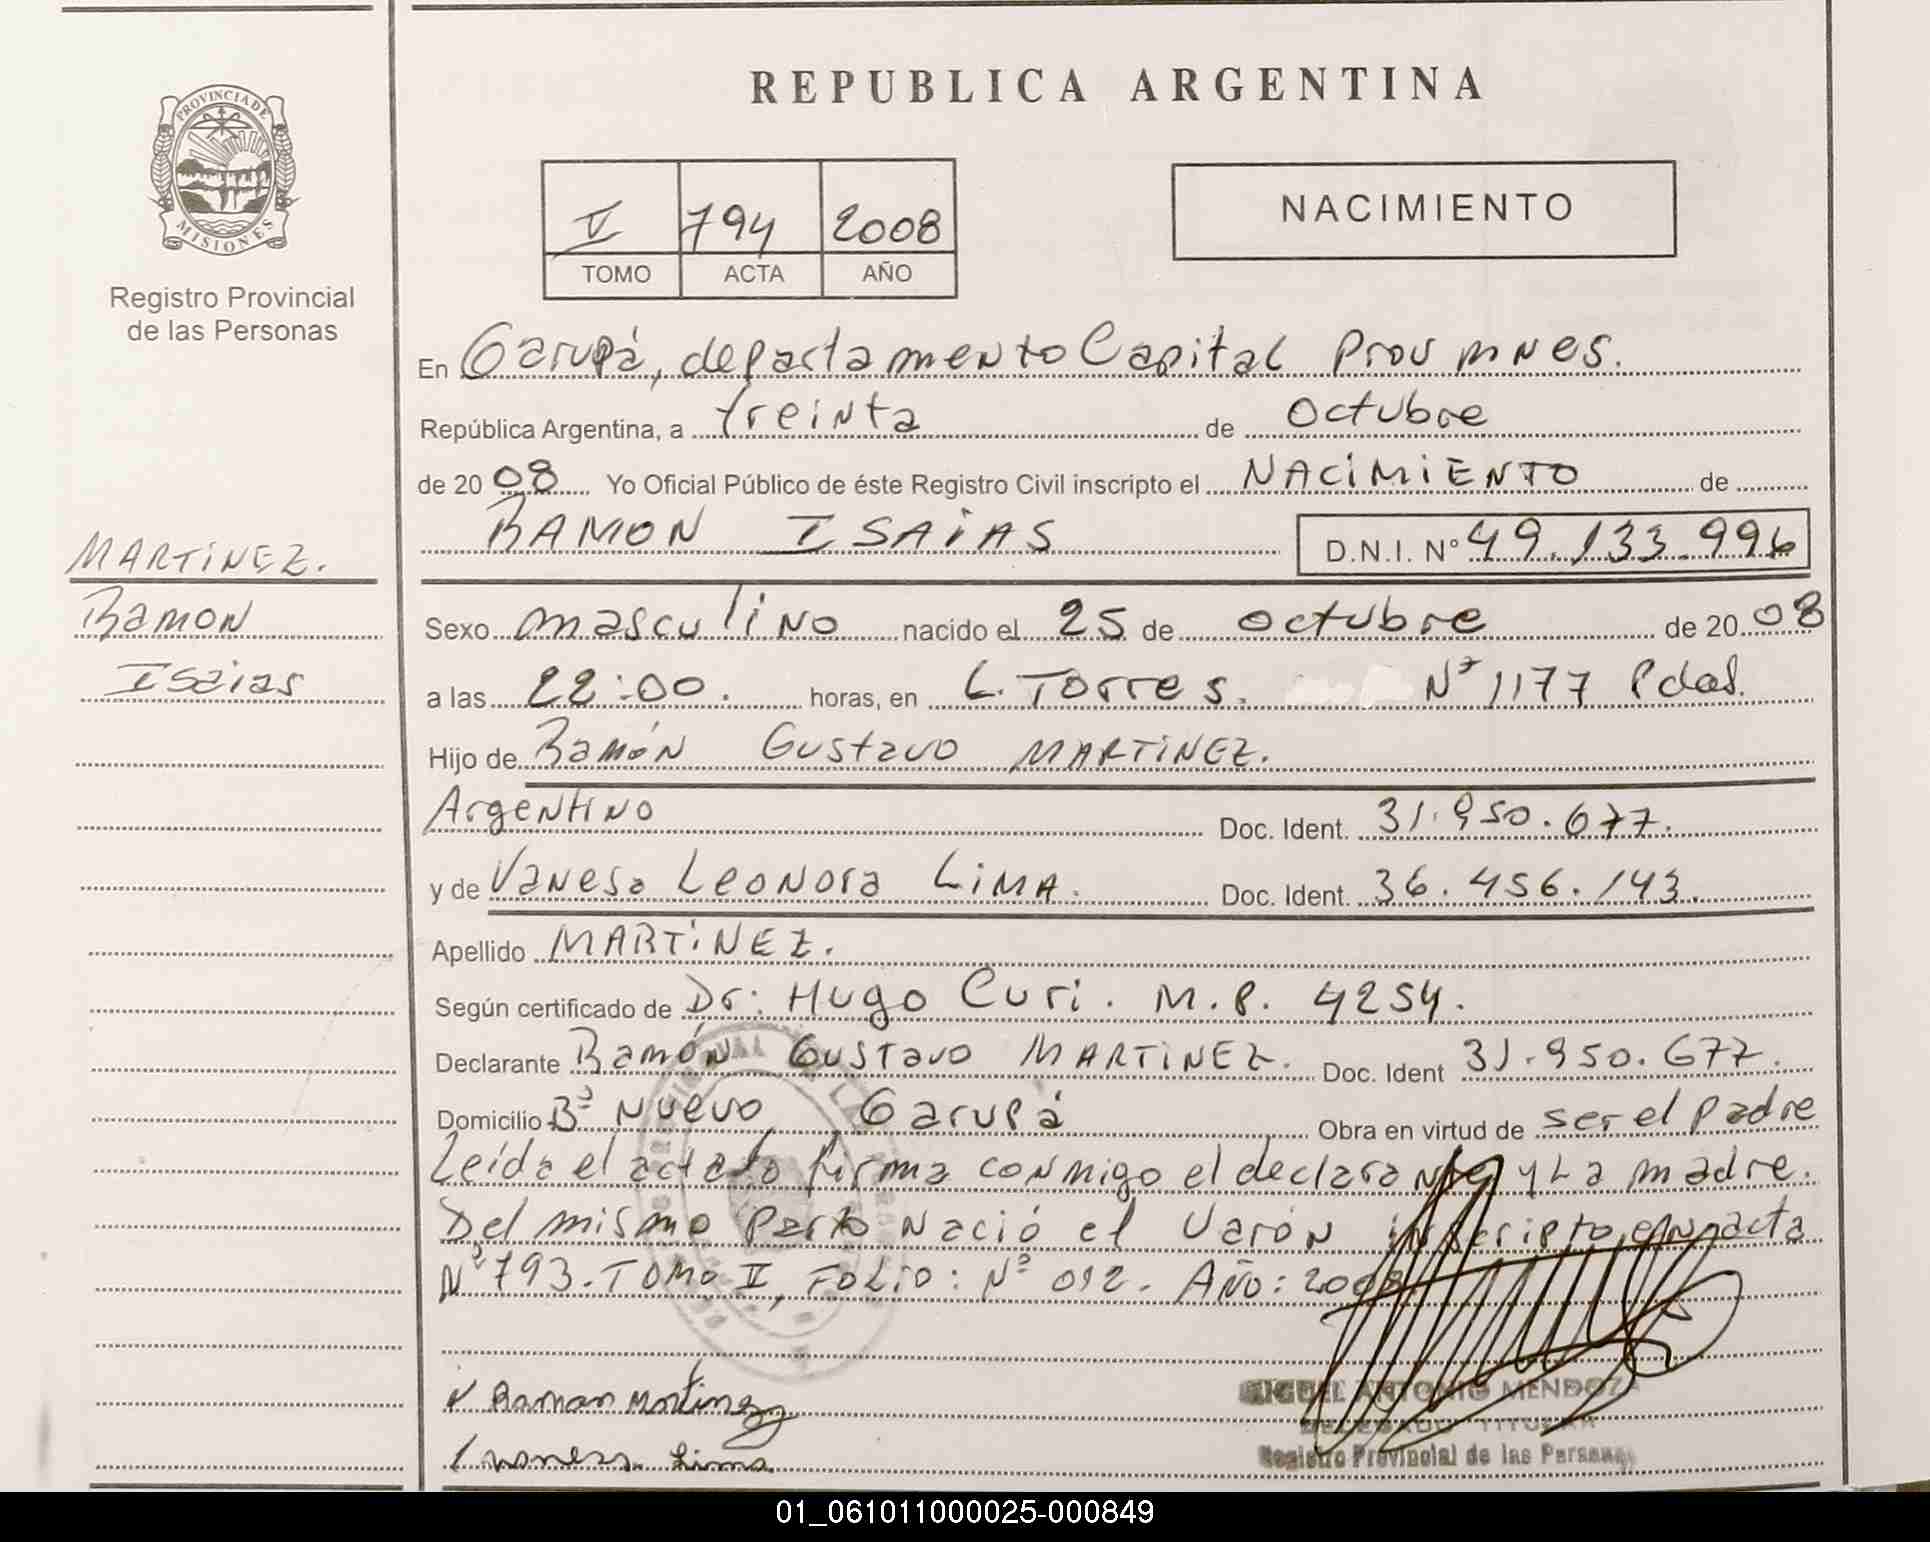 REPUBLICA ARGENTINA
PROVINCIA DE
MISIONES
Registro Provincial
de las Personas
V 794 2008
TOMO ACTA AÑO
NACIMIENTO
En Garupá, departamento Capital Prov mnes.
República Argentina, a treinta de octubre
de 20 08 Yo Oficial Público de éste Registro Civil inscripto el NACIMIENTO de
RAMON ISAIAS D.N.I. Nº 49.133.996
MARTINEZ.
Ramon
Isaias
Sexo masculino nacido el 25 de octubre de 20 08
a las 22:00. horas, en L. Torres. Nº 1177 Pdas.
Hijo de Ramón Gustavo MARTINEZ.
Argentino Doc. Ident. 31.950.677.
y de Vanesa Leonora LIMA. Doc. Ident. 36.456.143.
Apellido MARTINEZ.
Según certificado de Dr: Hugo Curi. M.P. 4254.
Declarante Ramón Gustavo MARTINEZ. Doc. Ident 31.950.677.
Domicilio Bº Nuevo Garupá Obra en virtud de ser el padre
Leída el acta la firma conmigo el declarante y La madre.
Del mismo Parto nació el Varón inscripto en acta
Nº 793. TOMO V, FOLIO: Nº 092. AÑO: 2008
Ramon Martinez
Lima
MIGUEL ANTONIO MENDOZA
DELEGADO TITULAR
Registro Provincial de las Personas
01_061011000025-000849